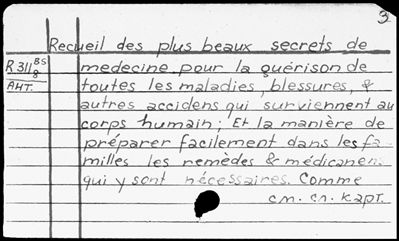 3
Recueil des plus beaux secrets de
R311 BS/8 medecine pour la guérison de
АНТ. toutes les maladies, blessures, &
autres accidens qui surviennent au
corps humain; Et la manière de
préparer facilement dans les fa-
milles les remèdes & médicamen.
qui y sont nécessaires. Comme
см. сл. карт.